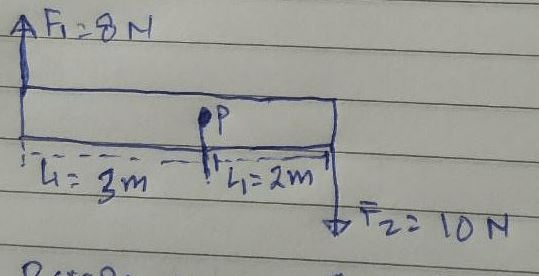 F₁ = 8 N
P
L₁ = 3m
L₁ = 2m
F₂ = 10 N